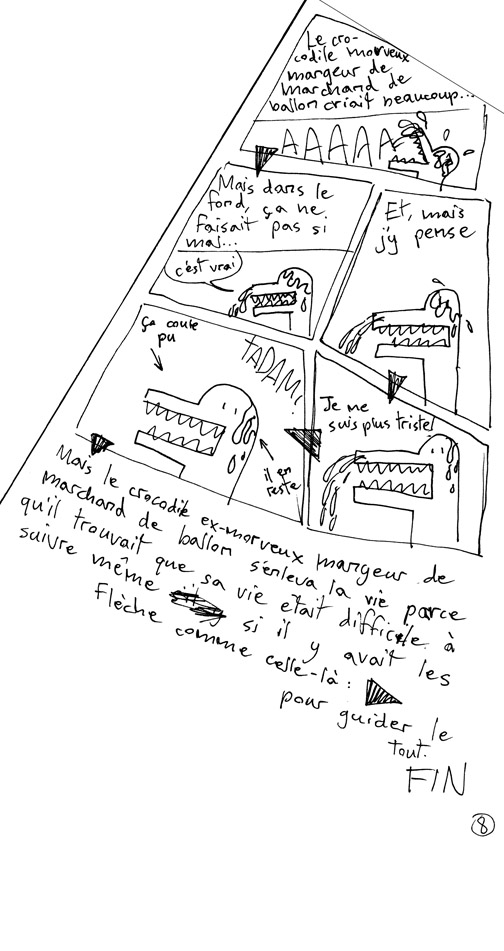 Le cro-
codile morveux
mangeur de
marchand de
ballon criait beaucoup...
AAAAA
Mais dans le
fond, ça ne
faisait pas si
mal...
c'est vrai
Et, mais
j'y pense
Je me
suis plus triste!
TADAM!
ça coule
pu
il en
reste
Mais le crocodile ex-morveux mangeur de
marchand de ballon s'enleva la vie parce
qu'il trouvait que sa vie était difficile à
suivre même si il y avait les
flèche comme celle-là :
pour guider le
tout.
FIN
8